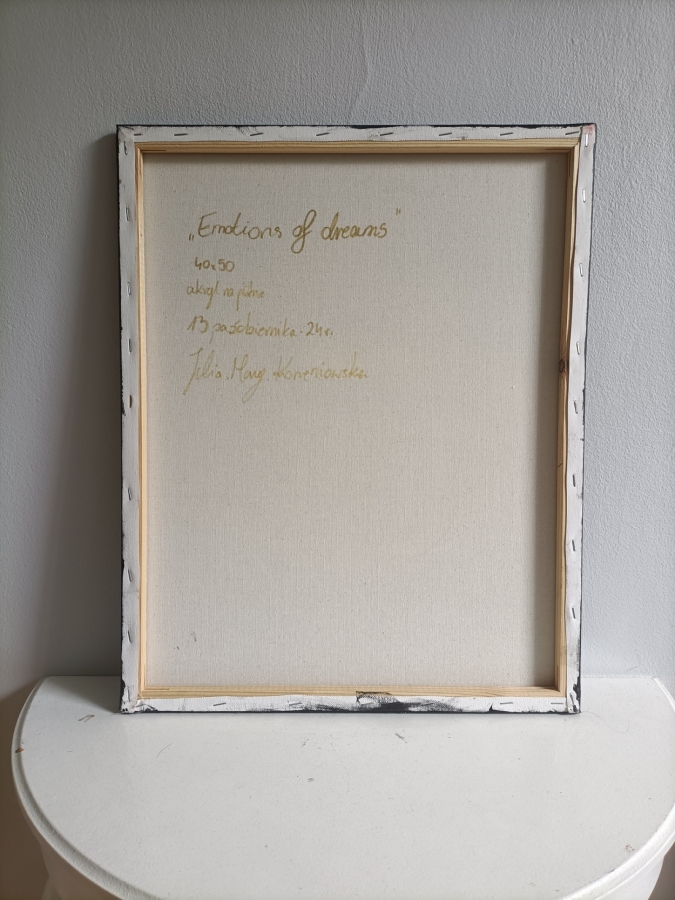 „Emotions of dreams"
40x50
akryl na płótnie
13 października 24r.
Julia